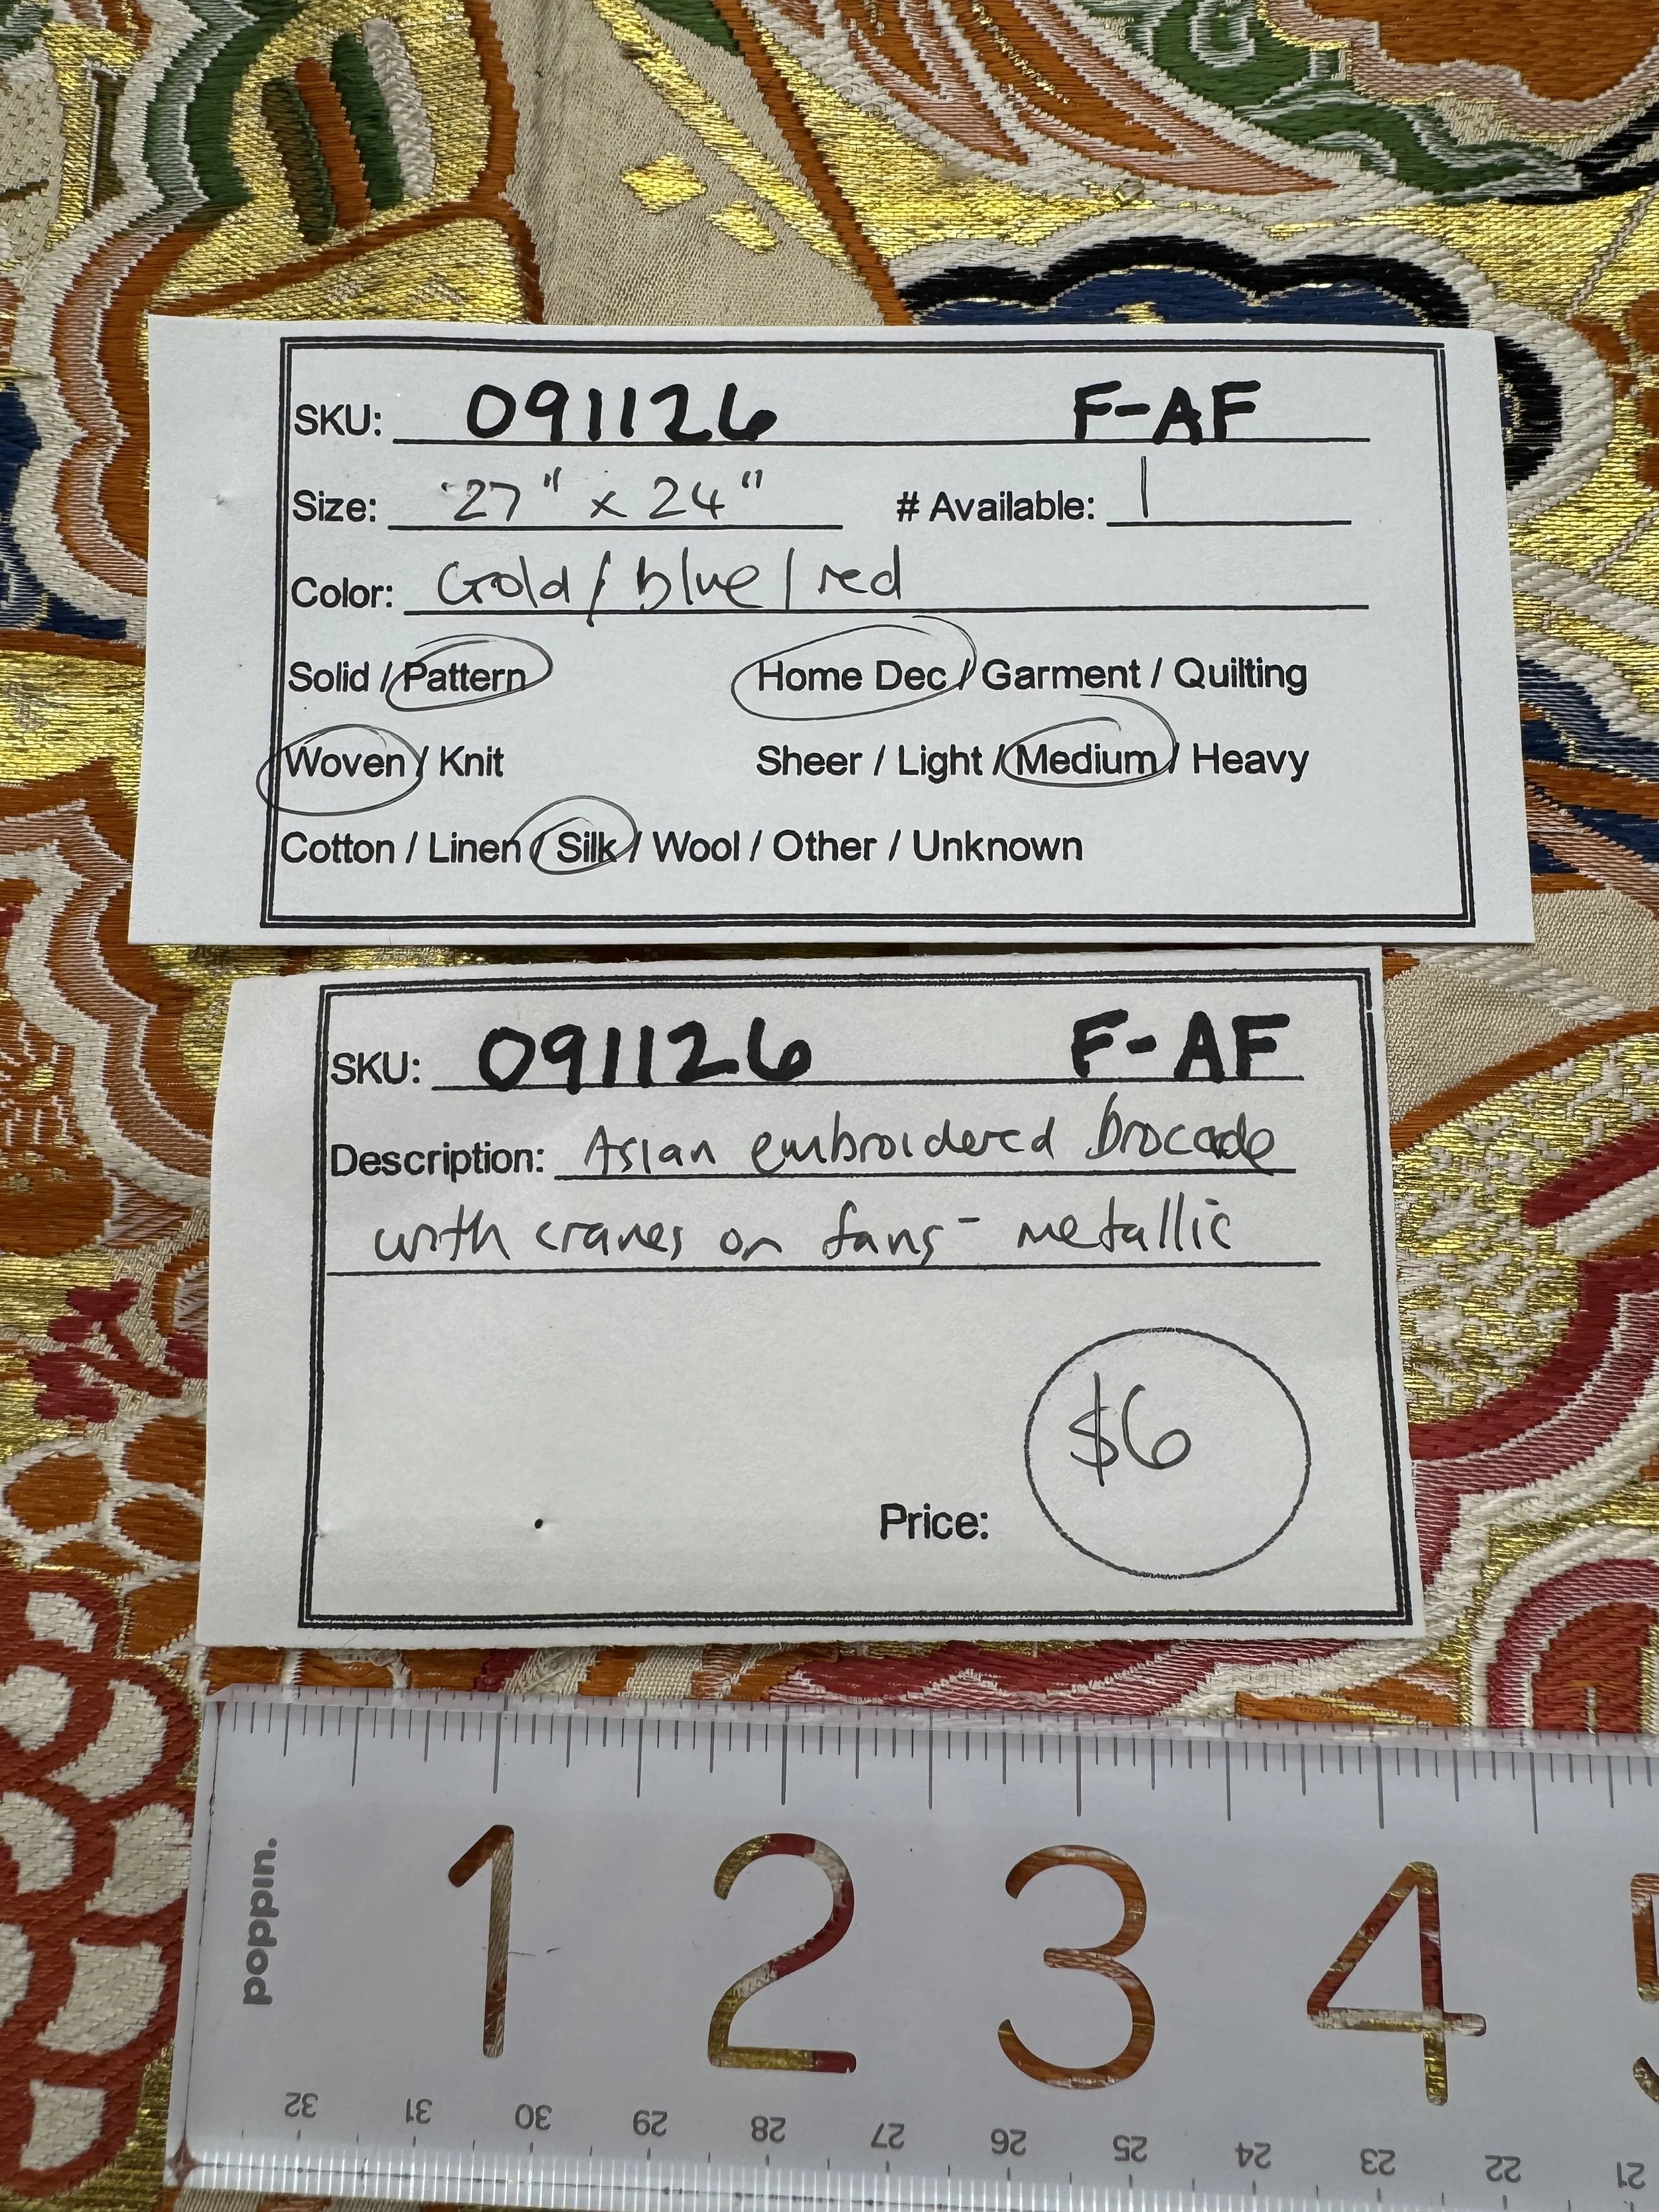 SKU: 091126 F-AF
Size: 27" x 24" # Available: 1
Color: Gold/blue/red
Solid / Pattern Home Dec / Garment / Quilting
Woven / Knit Sheer / Light / Medium / Heavy
Cotton / Linen / Silk / Wool / Other / Unknown
SKU: 091126 F-AF
Description: Asian embroidered brocade
with cranes on fans - metallic
$6
Price:
poppin.
1 2 3 4 5
32 31 30 29 28 27 26 25 24 23 22 21